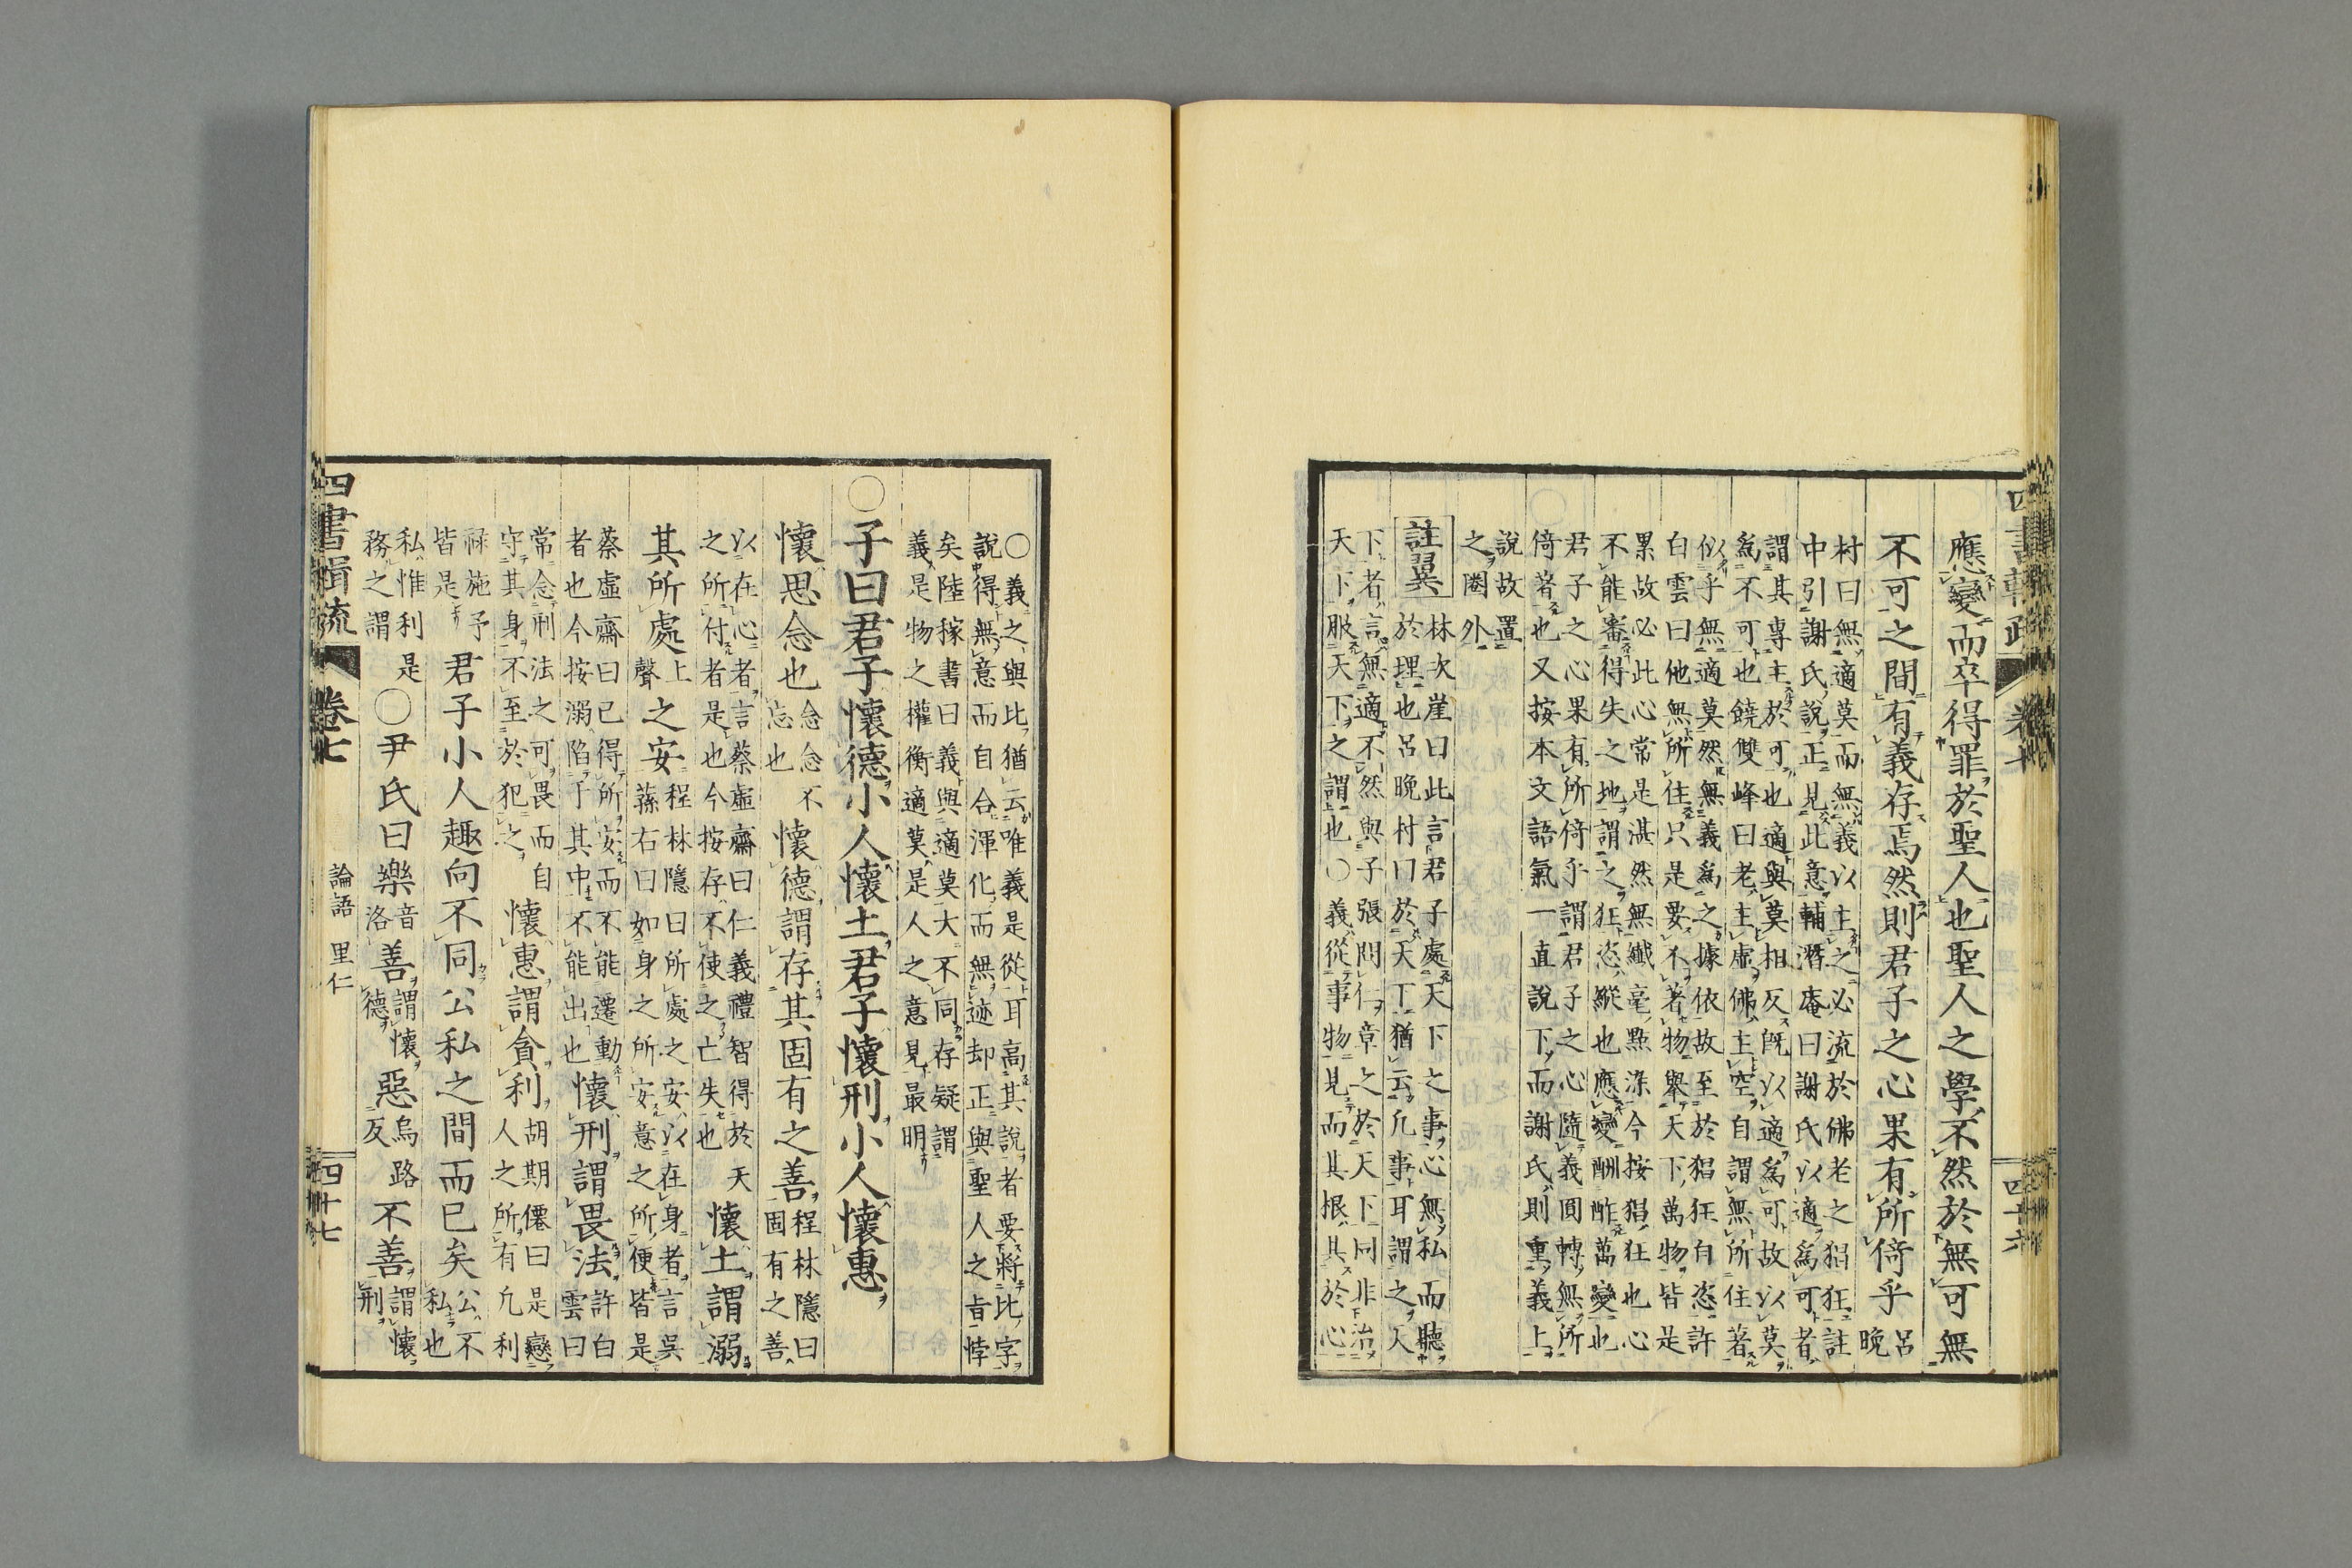 應變而卒得罪於聖人也聖人之學不然於無可無
不可之間有義存焉然則君子之心果有所倚乎呂晩
村曰無適莫而無義以主之必流於佛老之猖狂註
中引謝氏說正見此意輔潛庵曰謝氏以適爲可者
謂其專主於可也適與莫相反旣以適爲可故以莫
爲不可也饒雙峰曰老主虛佛主空自謂無所住著
似乎無適莫然無義爲之據依故至於猖狂自恣許
白雲曰他無所住只是要不著物舉天下萬物皆是
累故必此心常是湛然無纖毫點染今按猖狂也心
不能審得失之地謂之狂恣縱也應變酬酢萬變也
君子之心果有所倚乎謂君子之心隨義圓轉無所
倚著也又按本文語氣一直說下而謝氏則重義上
說故置
之圈外
註翼
林次崖曰此言君子處天下之事心無私而聽
於理也呂晩村曰於天下猶云凡事耳謂之天
下者言無適不然與子張問仁章之於天下同非治
天下服天下之謂也○義從事物見而其根其於心
四書輯疏 卷七 四十六
○義之與比猶云唯義是從耳高其說者要將比字
說得無意而自合渾化而無迹却正與聖人之旨悖
矣陸稼書曰義與適莫大不同存疑謂
義是物之權衡適莫是人之意見最明
○子曰君子懷德小人懷土君子懷刑小人懷惠
懷思念也念念不忘也懷德謂存其固有之善程林隱曰固有之善
以在心者言蔡虛齋曰仁義禮智得於天
之所付者是也今按存不使之亡失也
懷土謂溺
其所處上聲之安程林隱曰所處之安以在身者言吳蓀右曰如身之所安意之所便皆是
蔡虛齋曰已得所安而不能遷動
者也今按溺陷于其中不能出也
懷刑謂畏法許白雲曰
常念刑法之可畏而自
守其身不至於犯之
懷惠謂貪利胡期僊曰是戀人之所有凡利
祿施予
皆是
君子小人趣向不同公私之間而已矣公不私也
私惟利是
務之謂
○尹氏曰樂音洛善謂懷德惡烏路反不善謂懷刑
四書輯疏 卷七 論語 里仁 四十七